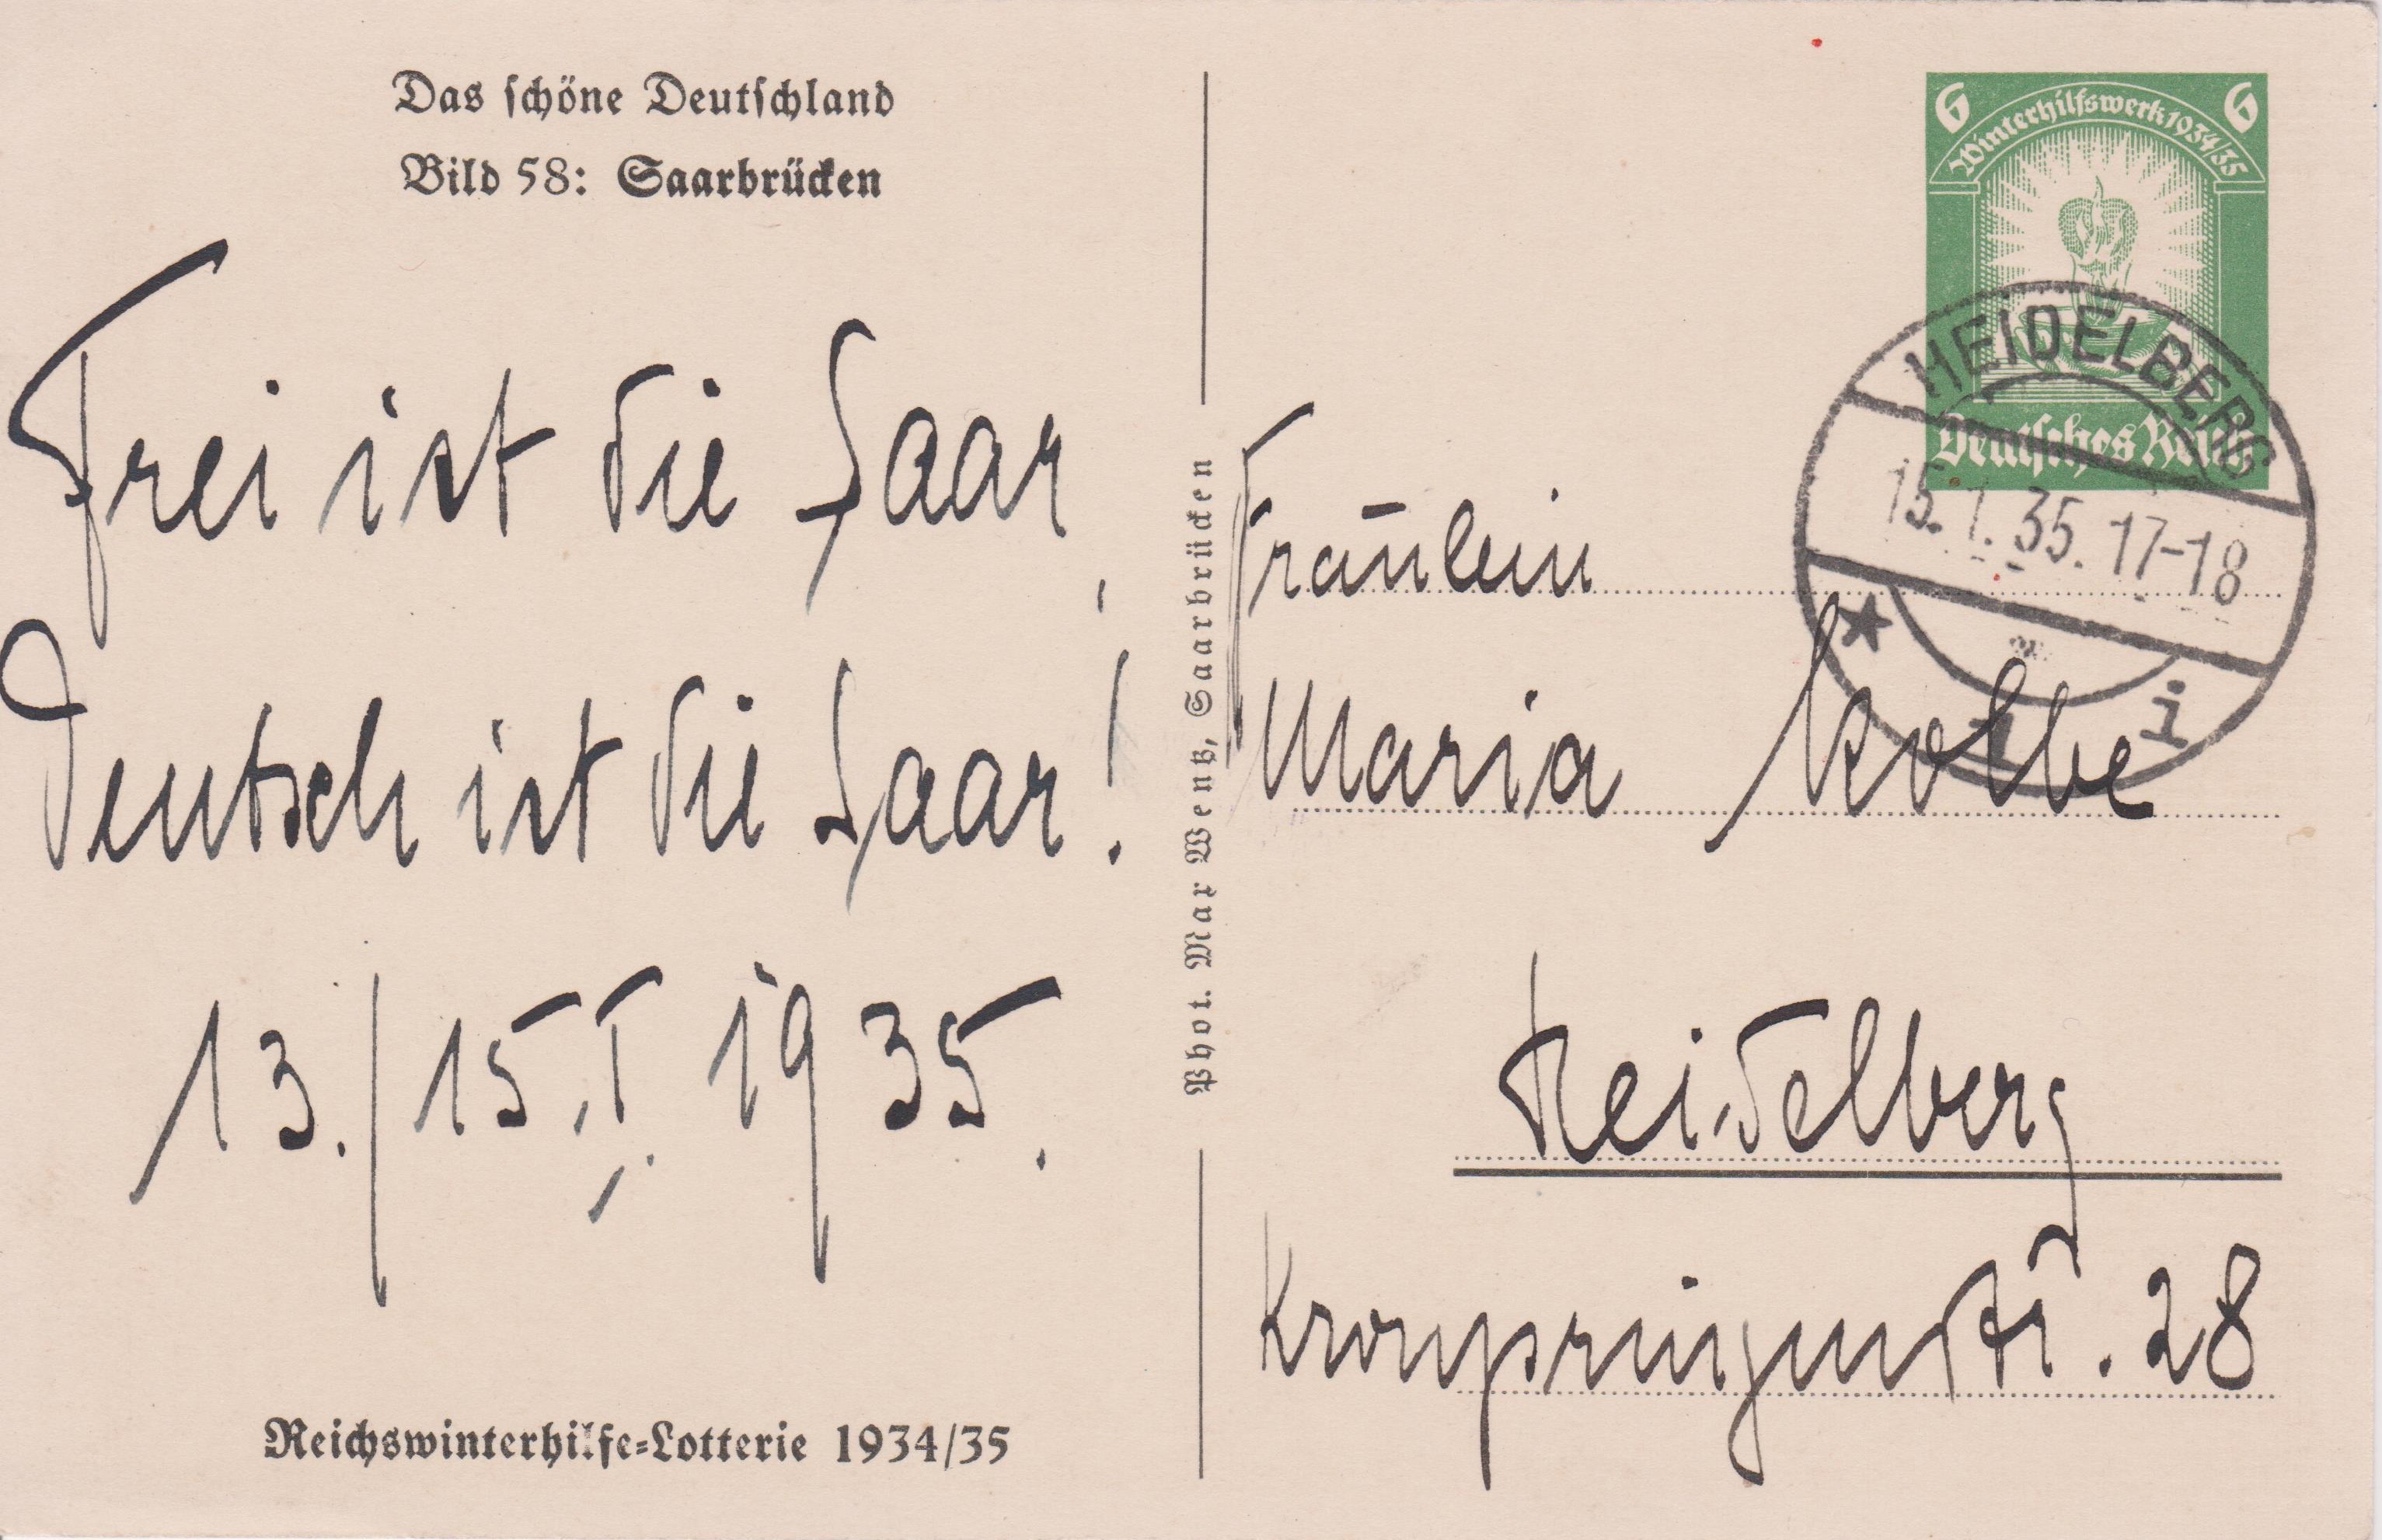 Das schöne Deutschland
Bild 58: Saarbrücken
Frei ist die Saar,
Deutsch ist die Saar!
13./15. I. 1935.
Reichswinterhilfe-Lotterie 1934/35
Phot. Max Wentz, Saarbrücken
6 Winterhilfswerk 1934/35 6
Deutsches Reich
HEIDELBERG
15.1.35.17-18
* 1 i
Fräulein
Maria Kolbe
Heidelberg
Kronprinzenstr. 28